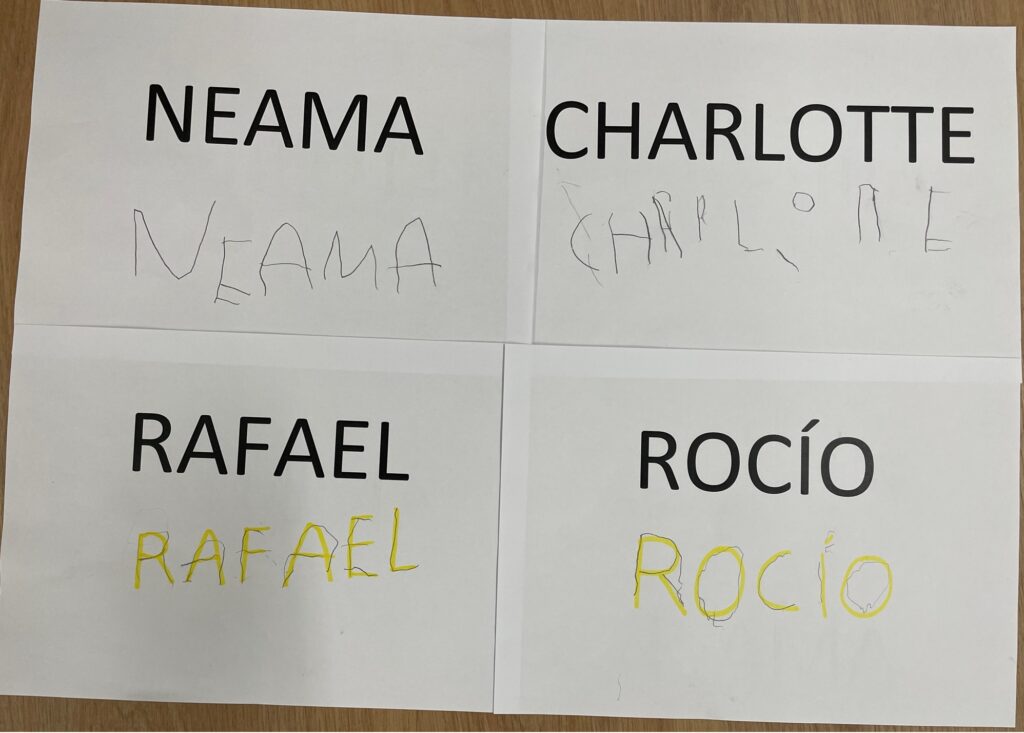 NEAMA
NEAMA
CHARLOTTE
CHARLOTE
RAFAEL
RAFAEL
ROCÍO
ROCÍO